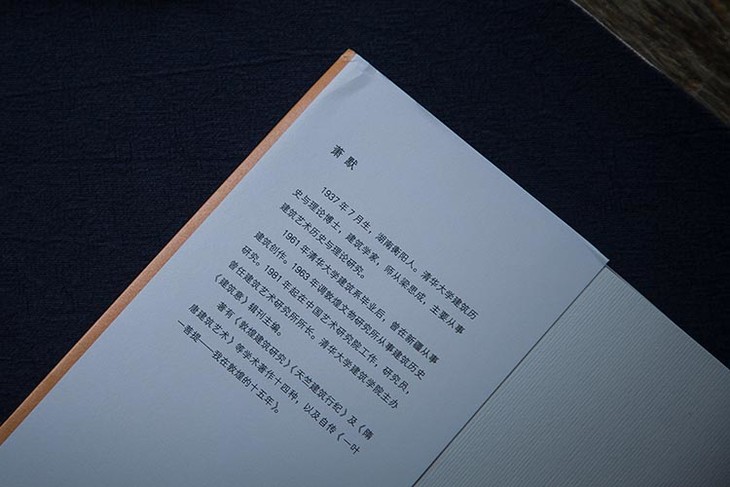 萧 默
1937 年 7 月生，湖南衡阳人。清华大学建筑历
史与理论博士，建筑学家，师从梁思成，主要从事
建筑艺术历史与理论研究。
1961 年清华大学建筑系毕业后，曾在新疆从事
建筑创作。1963 年调敦煌文物研究所从事建筑历史
研究。1981 年起在中国艺术研究院工作，研究员，
曾任建筑艺术研究所所长。清华大学建筑学院主办
《建筑意》辑刊主编。
著有《敦煌建筑研究》《天竺建筑行纪》及《隋
唐建筑艺术》等学术著作十四种，以及自传《一叶
一菩提——我在敦煌的十五年》。